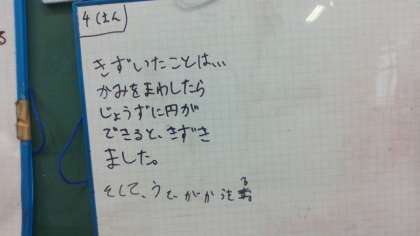 4(はん)
きずいたことは、、、
かみをまわしたら
じょうずに円が
できると、きずき
ました。
そして、うで、がか